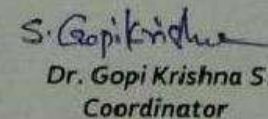 S. GopiKrishna
Dr. Gopi Krishna S
Coordinator